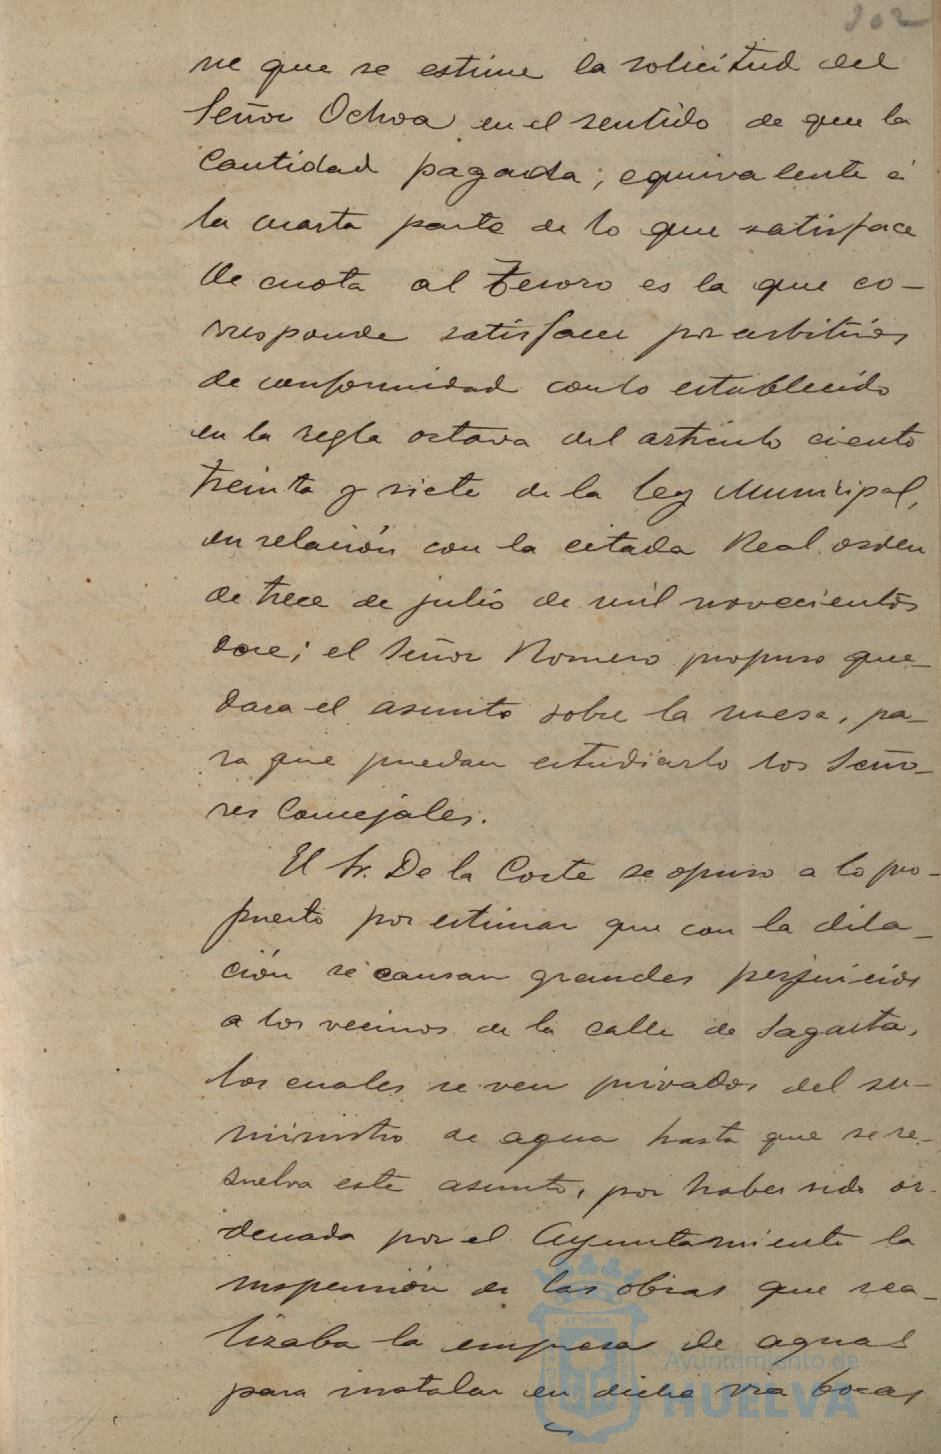 302
ne que se estime la solicitud del
Señor Ochoa en el sentido de que la
Cantidad pagada, equivalente á
la cuarta parte de lo que satisface
de cuota al Tesoro es la que co-
rresponde satisfacer por arbitrios
de conformidad con lo establecido
en la regla octava del artículo ciento
treinta y siete de la Ley Municipal,
en relación con la citada Real orden
de trece de julio de mil novecientos
doce; el Señor Romero propuso que-
dara el asunto sobre la mesa, pa-
ra que puedan estudiarlo los Seño-
res Concejales.
El Sr. De la Corte se opuso a lo pro-
puesto por estimar que con la dila-
ción se causan grandes perjuicios
a los vecinos de la calle de Sagasta,
los cuales se ven privados del su-
ministro de agua hasta que se re-
suelva este asunto, por haber sido or-
denada por el Ayuntamiento la
suspensión de las obras que rea-
lizaba la empresa de aguas
para instalar en dicha vía bocas
Ayuntamiento de
HUELVA